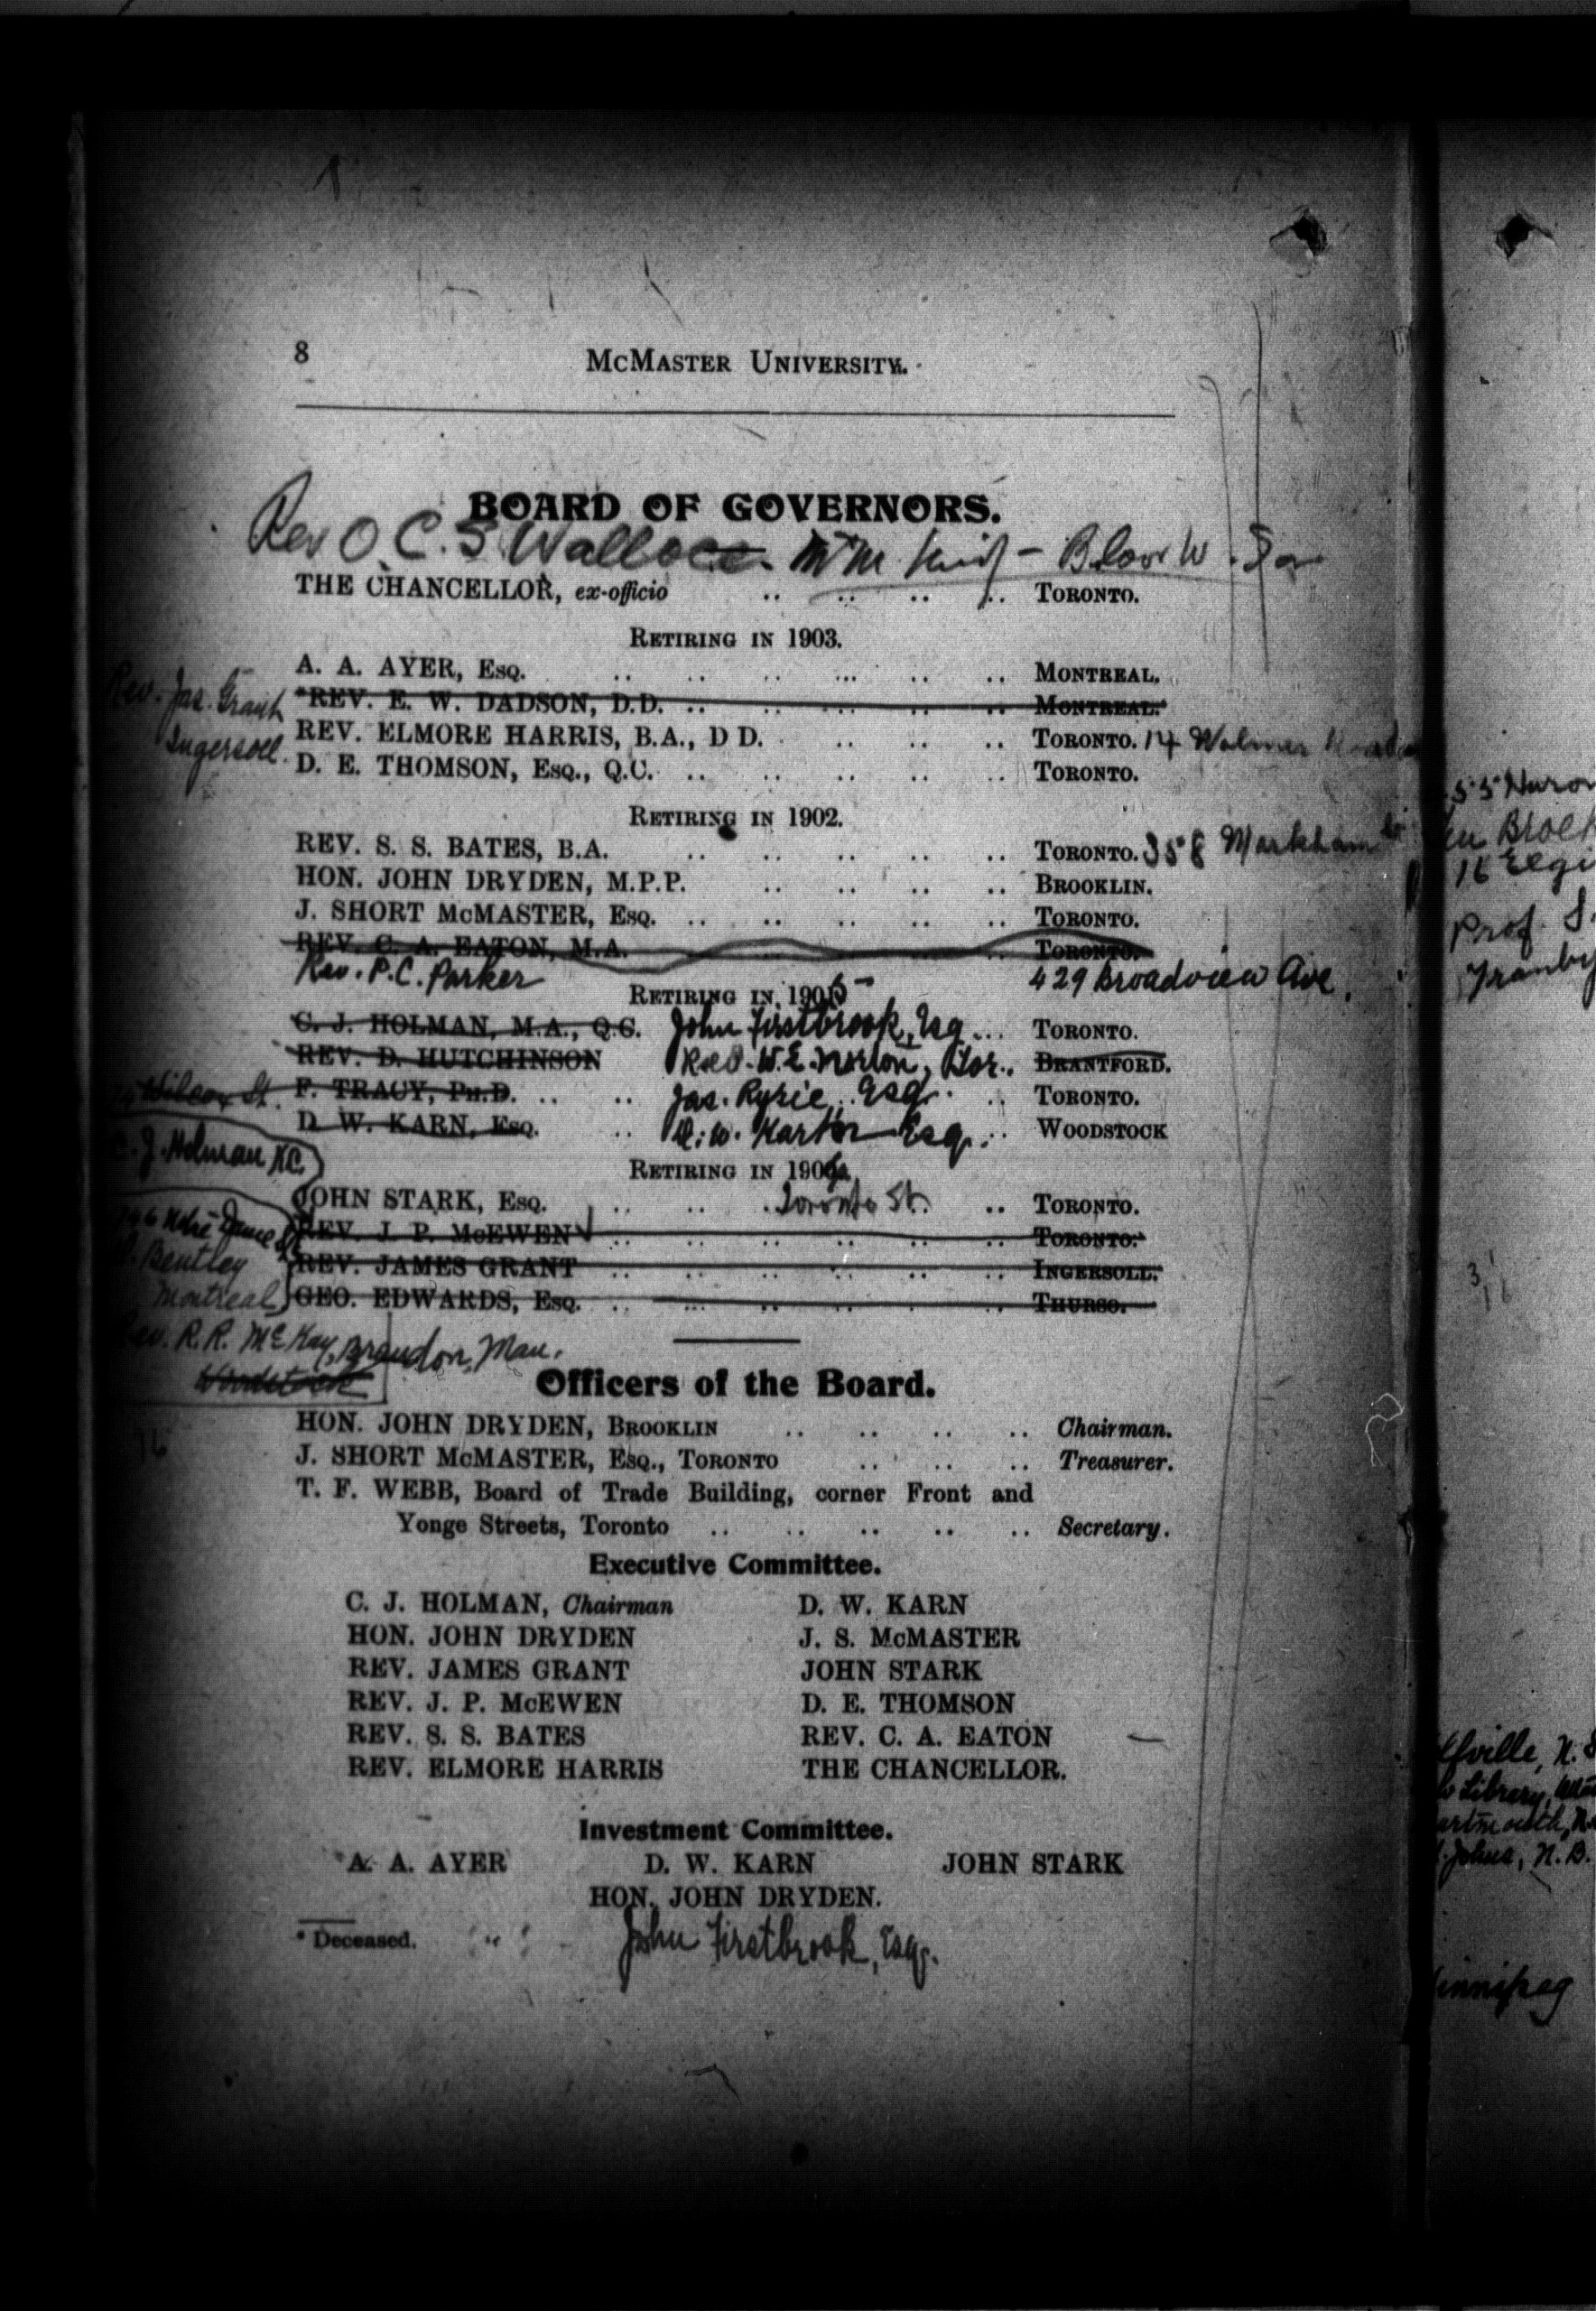 8
McMaster University.
BOARD OF GOVERNORS.
Rev O. C. S Wallace. Bloor W.
THE CHANCELLOR, ex-officio .. .. .. .. Toronto.
Retiring in 1903.
A. A. AYER, Esq. .. .. .. ... .. .. Montreal.
Rev. Jas. Grant
*REV. E. W. DADSON, D.D. .. .. ... .. .. Montreal.
Ingersoll.
REV. ELMORE HARRIS, B.A., D D. .. .. .. Toronto. 14 Walmer Road
D. E. THOMSON, Esq., Q.C. .. .. .. .. .. Toronto.
Retiring in 1902.
REV. S. S. BATES, B.A. .. .. .. .. .. Toronto. 358 Markham St
HON. JOHN DRYDEN, M.P.P. .. .. .. .. Brooklin.
J. SHORT McMASTER, Esq. .. .. .. .. .. Toronto.
REV. C. A. EATON, M.A. .. .. .. .. .. Toronto.
Rev. P. C. Parker 429 Broadview Ave.
Retiring in 1905
C. J. HOLMAN, M.A., Q.C. John Firstbrook, Esq ... Toronto.
REV. D. HUTCHINSON Rev. W. E. Norton, Tor. Brantford.
Wilcox St. F. TRACY, Ph.D. .. .. Jas. Ryrie, Esq. .. Toronto.
D. W. KARN, Esq. .. D. W. Karn Esq. .. Woodstock
C. J. Holman KC.
Retiring in 190
JOHN STARK, Esq. .. .. Toronto St. .. Toronto.
Notre Dame St
REV. J. P. McEWEN .. .. .. .. .. .. Toronto.
Bentley
REV. JAMES GRANT .. .. .. .. .. .. Ingersoll.
Montreal
GEO. EDWARDS, Esq. .. ... .. .. .. .. Thurso.
Rev. R. R. McKay, Brandon, Man.
Woodstock
Officers of the Board.
HON. JOHN DRYDEN, Brooklin .. .. .. .. Chairman.
J. SHORT McMASTER, Esq., Toronto .. .. .. Treasurer.
T. F. WEBB, Board of Trade Building, corner Front and
Yonge Streets, Toronto .. .. .. .. .. Secretary.
Executive Committee.
C. J. HOLMAN, Chairman D. W. KARN
HON. JOHN DRYDEN J. S. McMASTER
REV. JAMES GRANT JOHN STARK
REV. J. P. McEWEN D. E. THOMSON
REV. S. S. BATES REV. C. A. EATON
REV. ELMORE HARRIS THE CHANCELLOR.
Investment Committee.
A. A. AYER D. W. KARN JOHN STARK
HON. JOHN DRYDEN.
* Deceased. John Firstbrook, Esq.
16 Elgi
Prof.
Library